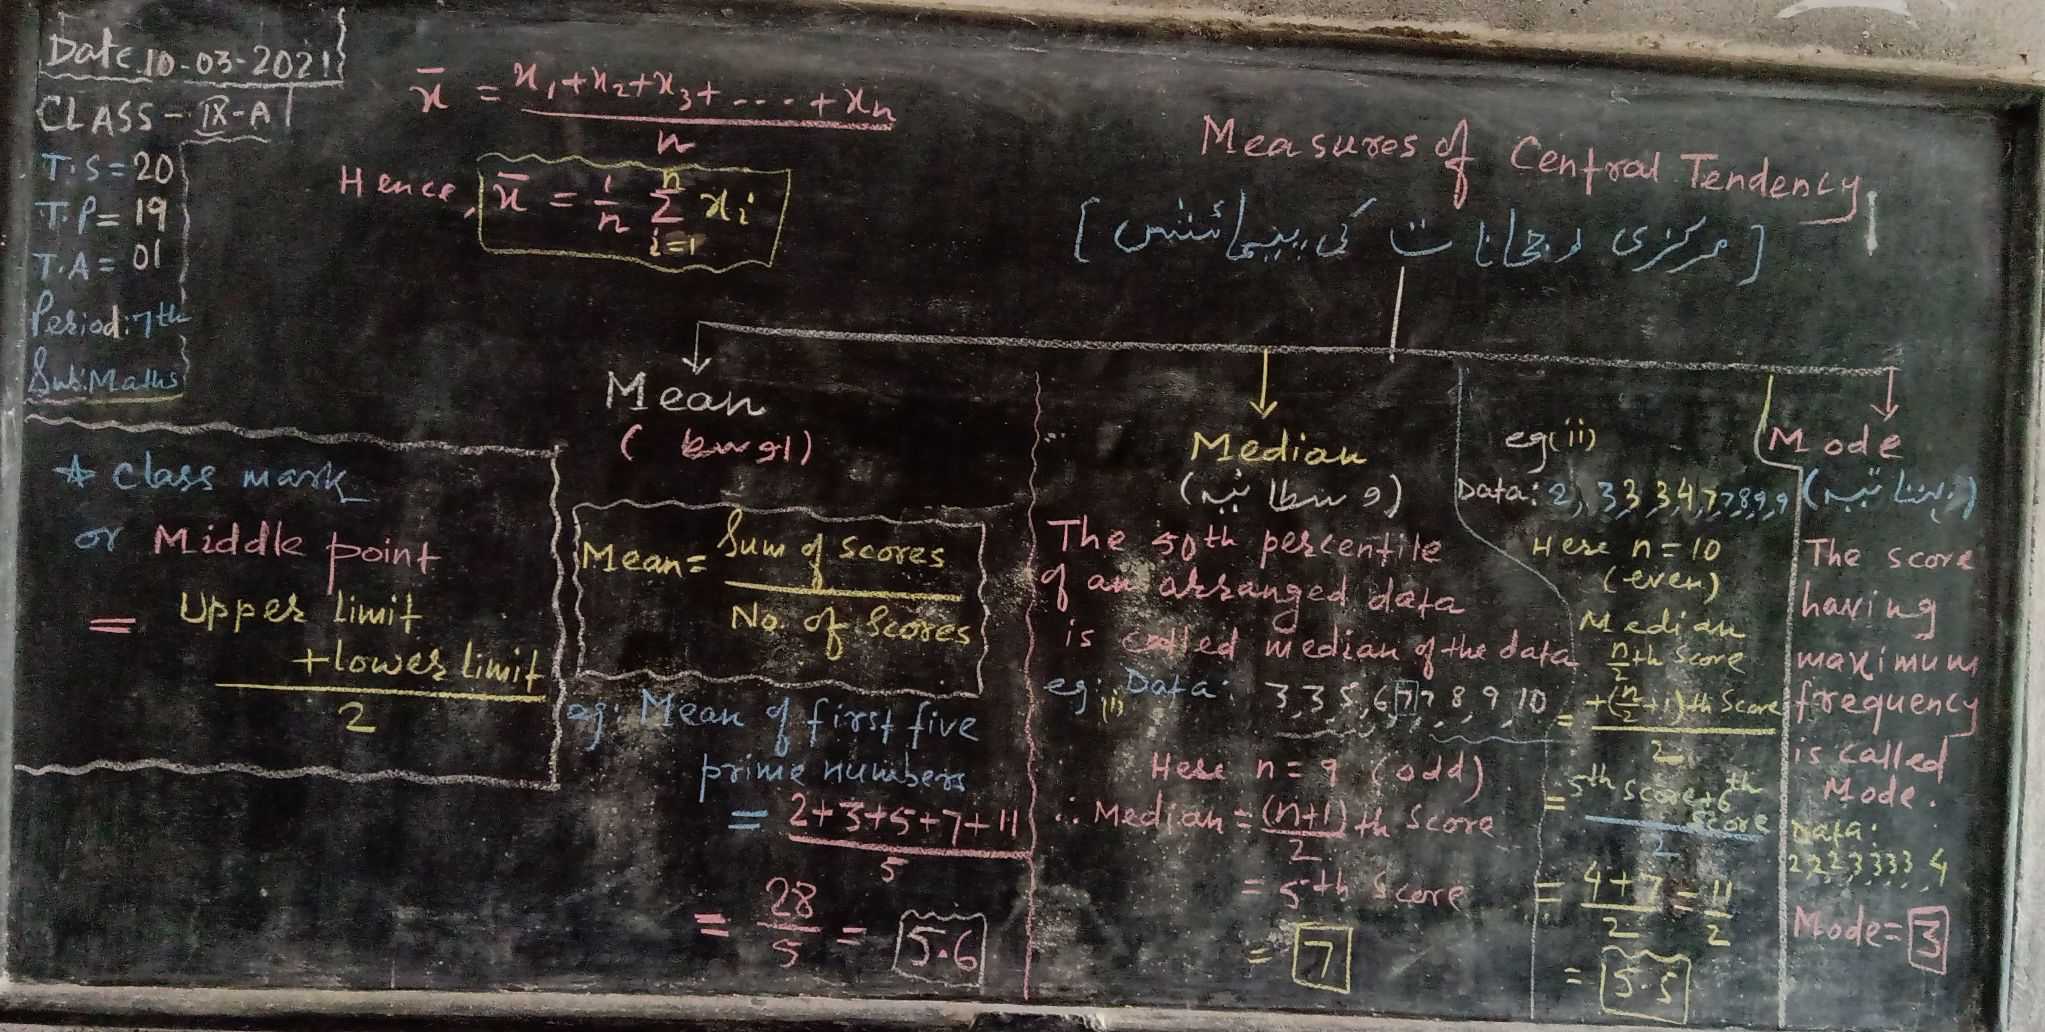 Date. 10-03-2021
CLASS - IX-A
T.S = 20
T.P = 19
T.A = 01
Period: 7th
Sub: Maths
x̄ = x₁+x₂+x₃+....+xₙ
n
Hence, x̄ = 1/n Σ xᵢ
n
i=1
Measures of Central Tendency
[مرکزی رجحانات کی پیمائشیں]
* class mark
or Middle point
= Upper limit
+ lower limit
2
Mean
(اوسط)
Mean = Sum of scores
No. of Scores
eg: Mean of first five
prime numbers
= 2+3+5+7+11
5
= 28/5 = 5.6
Median
(وسطانیہ)
The 50th percentile
of an arranged data
is called median of the data
eg (i) Data: 3,3,5,6,7,7,8,9,10
Here n = 9 (odd)
∴ Median = (n+1)/2 th Score
= 5th Score
= 7
eg(ii)
Data: 2,3,3,3,4,7,7,8,9,9
Here n = 10
(even)
Median
n/2 th Score
= +(n/2+1)th Score
2
= 5th Score+6th
Score
2
= 4+7/2 = 11/2
= 5.5
Mode
The score
having
maximum
frequency
is called
Mode.
Data:
2,2,2,3,3,3,3,4
Mode = 3